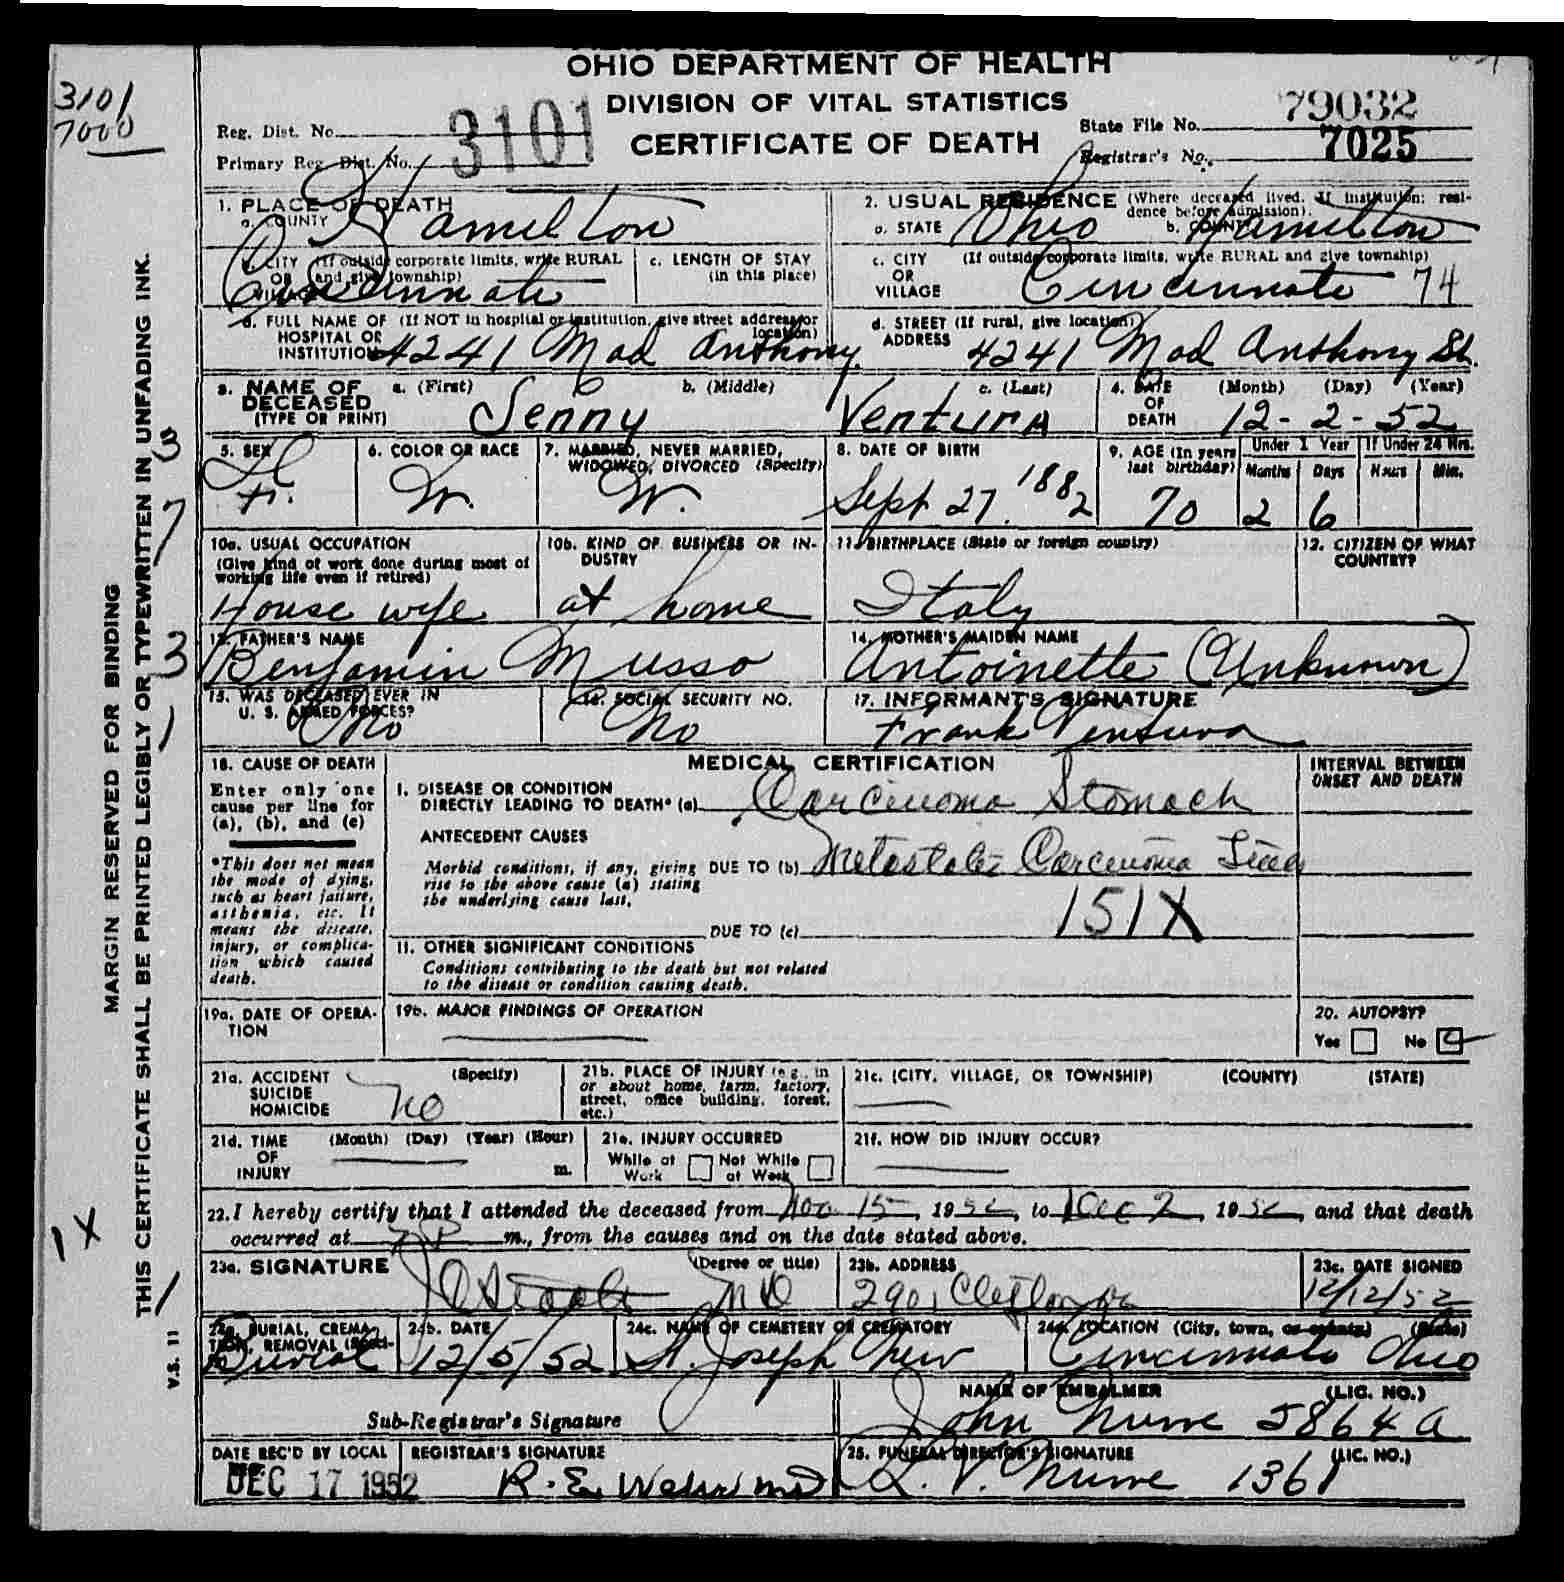 OHIO DEPARTMENT OF HEALTH
DIVISION OF VITAL STATISTICS
CERTIFICATE OF DEATH
3101
7000
Reg. Dist. No. 3101
Primary Reg. Dist. No.
State File No. 79032
Registrar's No. 7025
MARGIN RESERVED FOR BINDING
THIS CERTIFICATE SHALL BE PRINTED LEGIBLY OR TYPEWRITTEN IN UNFADING INK.
3
7
3
1
1X
1
V.S. 11
1. PLACE OF DEATH
a. COUNTY Hamilton
b. CITY (If outside corporate limits, write RURAL
OR and give township)
VILLAGE Cincinnati
c. LENGTH OF STAY
(in this place)
d. FULL NAME OF (If NOT in hospital or institution, give street address or
HOSPITAL OR location)
INSTITUTION 4241 Mad Anthony
2. USUAL RESIDENCE (Where deceased lived. If institution: resi-
dence before admission).
a. STATE Ohio b. COUNTY Hamilton
c. CITY (If outside corporate limits, write RURAL and give township)
OR
VILLAGE Cincinnati 74
d. STREET (If rural, give location)
ADDRESS 4241 Mad Anthony St.
3. NAME OF a. (First) b. (Middle) c. (Last)
DECEASED
(TYPE OR PRINT) Jenny Ventura
4. DATE (Month) (Day) (Year)
OF
DEATH 12-2-52
5. SEX
F.
6. COLOR OR RACE
W.
7. MARRIED, NEVER MARRIED,
WIDOWED, DIVORCED (Specify)
W.
8. DATE OF BIRTH
Sept 27, 1882
9. AGE (In years
last birthday)
70
Under 1 Year
Months Days
2 6
If Under 24 Hrs.
Hours Min.
10a. USUAL OCCUPATION
(Give kind of work done during most of
working life even if retired)
House wife
10b. KIND OF BUSINESS OR IN-
DUSTRY
at home
11. BIRTHPLACE (State or foreign country)
Italy
12. CITIZEN OF WHAT
COUNTRY?
13. FATHER'S NAME
Benjamin Musso
14. MOTHER'S MAIDEN NAME
Antoinette (Unknown)
15. WAS DECEASED EVER IN
U. S. ARMED FORCES?
No
16. SOCIAL SECURITY NO.
No
17. INFORMANT'S SIGNATURE
Frank Ventura
18. CAUSE OF DEATH
Enter only one
cause per line for
(a), (b), and (c)
*This does not mean
the mode of dying,
such as heart failure,
asthenia, etc. It
means the disease,
injury, or complica-
tion which caused
death.
MEDICAL CERTIFICATION
I. DISEASE OR CONDITION
DIRECTLY LEADING TO DEATH* (a) Carcinoma Stomach
ANTECEDENT CAUSES
Morbid conditions, if any, giving DUE TO (b) Metastatic Carcinoma Liver
rise to the above cause (a) stating
the underlying cause last.
151X
DUE TO (c)
II. OTHER SIGNIFICANT CONDITIONS
Conditions contributing to the death but not related
to the disease or condition causing death.
INTERVAL BETWEEN
ONSET AND DEATH
19a. DATE OF OPERA-
TION
19b. MAJOR FINDINGS OF OPERATION
20. AUTOPSY?
Yes No
21a. ACCIDENT (Specify)
SUICIDE
HOMICIDE
No
21b. PLACE OF INJURY (e.g., in
or about home, farm, factory,
street, office building, forest,
etc.)
21c. (CITY, VILLAGE, OR TOWNSHIP) (COUNTY) (STATE)
21d. TIME (Month) (Day) (Year) (Hour)
OF
INJURY m.
21e. INJURY OCCURRED
While at Not While
Work at Work
21f. HOW DID INJURY OCCUR?
22. I hereby certify that I attended the deceased from Nov 15, 1952, to Dec 2, 1952, and that death
occurred at 7 P m., from the causes and on the date stated above.
23a. SIGNATURE (Degree or title)
MD
23b. ADDRESS
2901
23c. DATE SIGNED
12/12/52
24a. BURIAL, CREMA-
TION, REMOVAL (Speci-
Burial
24b. DATE
12/5/52
24c. NAME OF CEMETERY OR CREMATORY
St. Joseph New
24d. LOCATION (City, town, or county) (State)
Cincinnati Ohio
Sub-Registrar's Signature
NAME OF EMBALMER (LIC. NO.)
John Nurre 5864 A
DATE REC'D BY LOCAL
DEC 17 1952
REGISTRAR'S SIGNATURE
R. E. Wehr MD
25. FUNERAL DIRECTOR'S SIGNATURE (LIC. NO.)
L. V. Nurre 1361